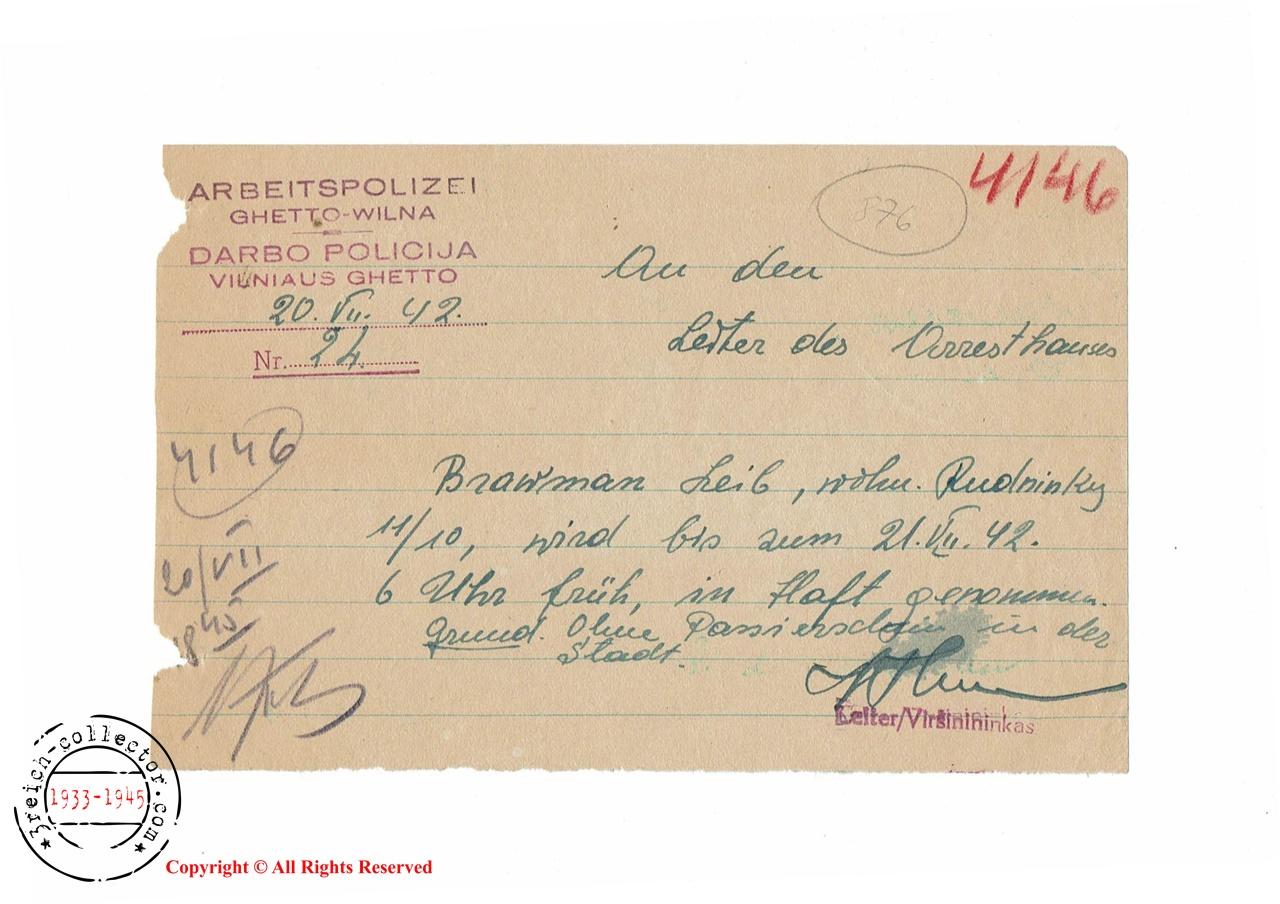 ARBEITSPOLIZEI
GHETTO-WILNA
DARBO POLICIJA
VILNIAUS GHETTO
20. VII. 42.
Nr. 24.
876
4146
An den
Leiter des Arresthauses
4146
20/VII
18 45
Brawman Leib, wohn. Rudninky
11/10, wird bis zum 21. VII. 42.
6 Uhr früh, in Haft genommen.
Grund. Ohne Passierschein in der
Stadt.
Leiter/Viršinininkas
3reich-collector.com
1933-1945
Copyright © All Rights Reserved